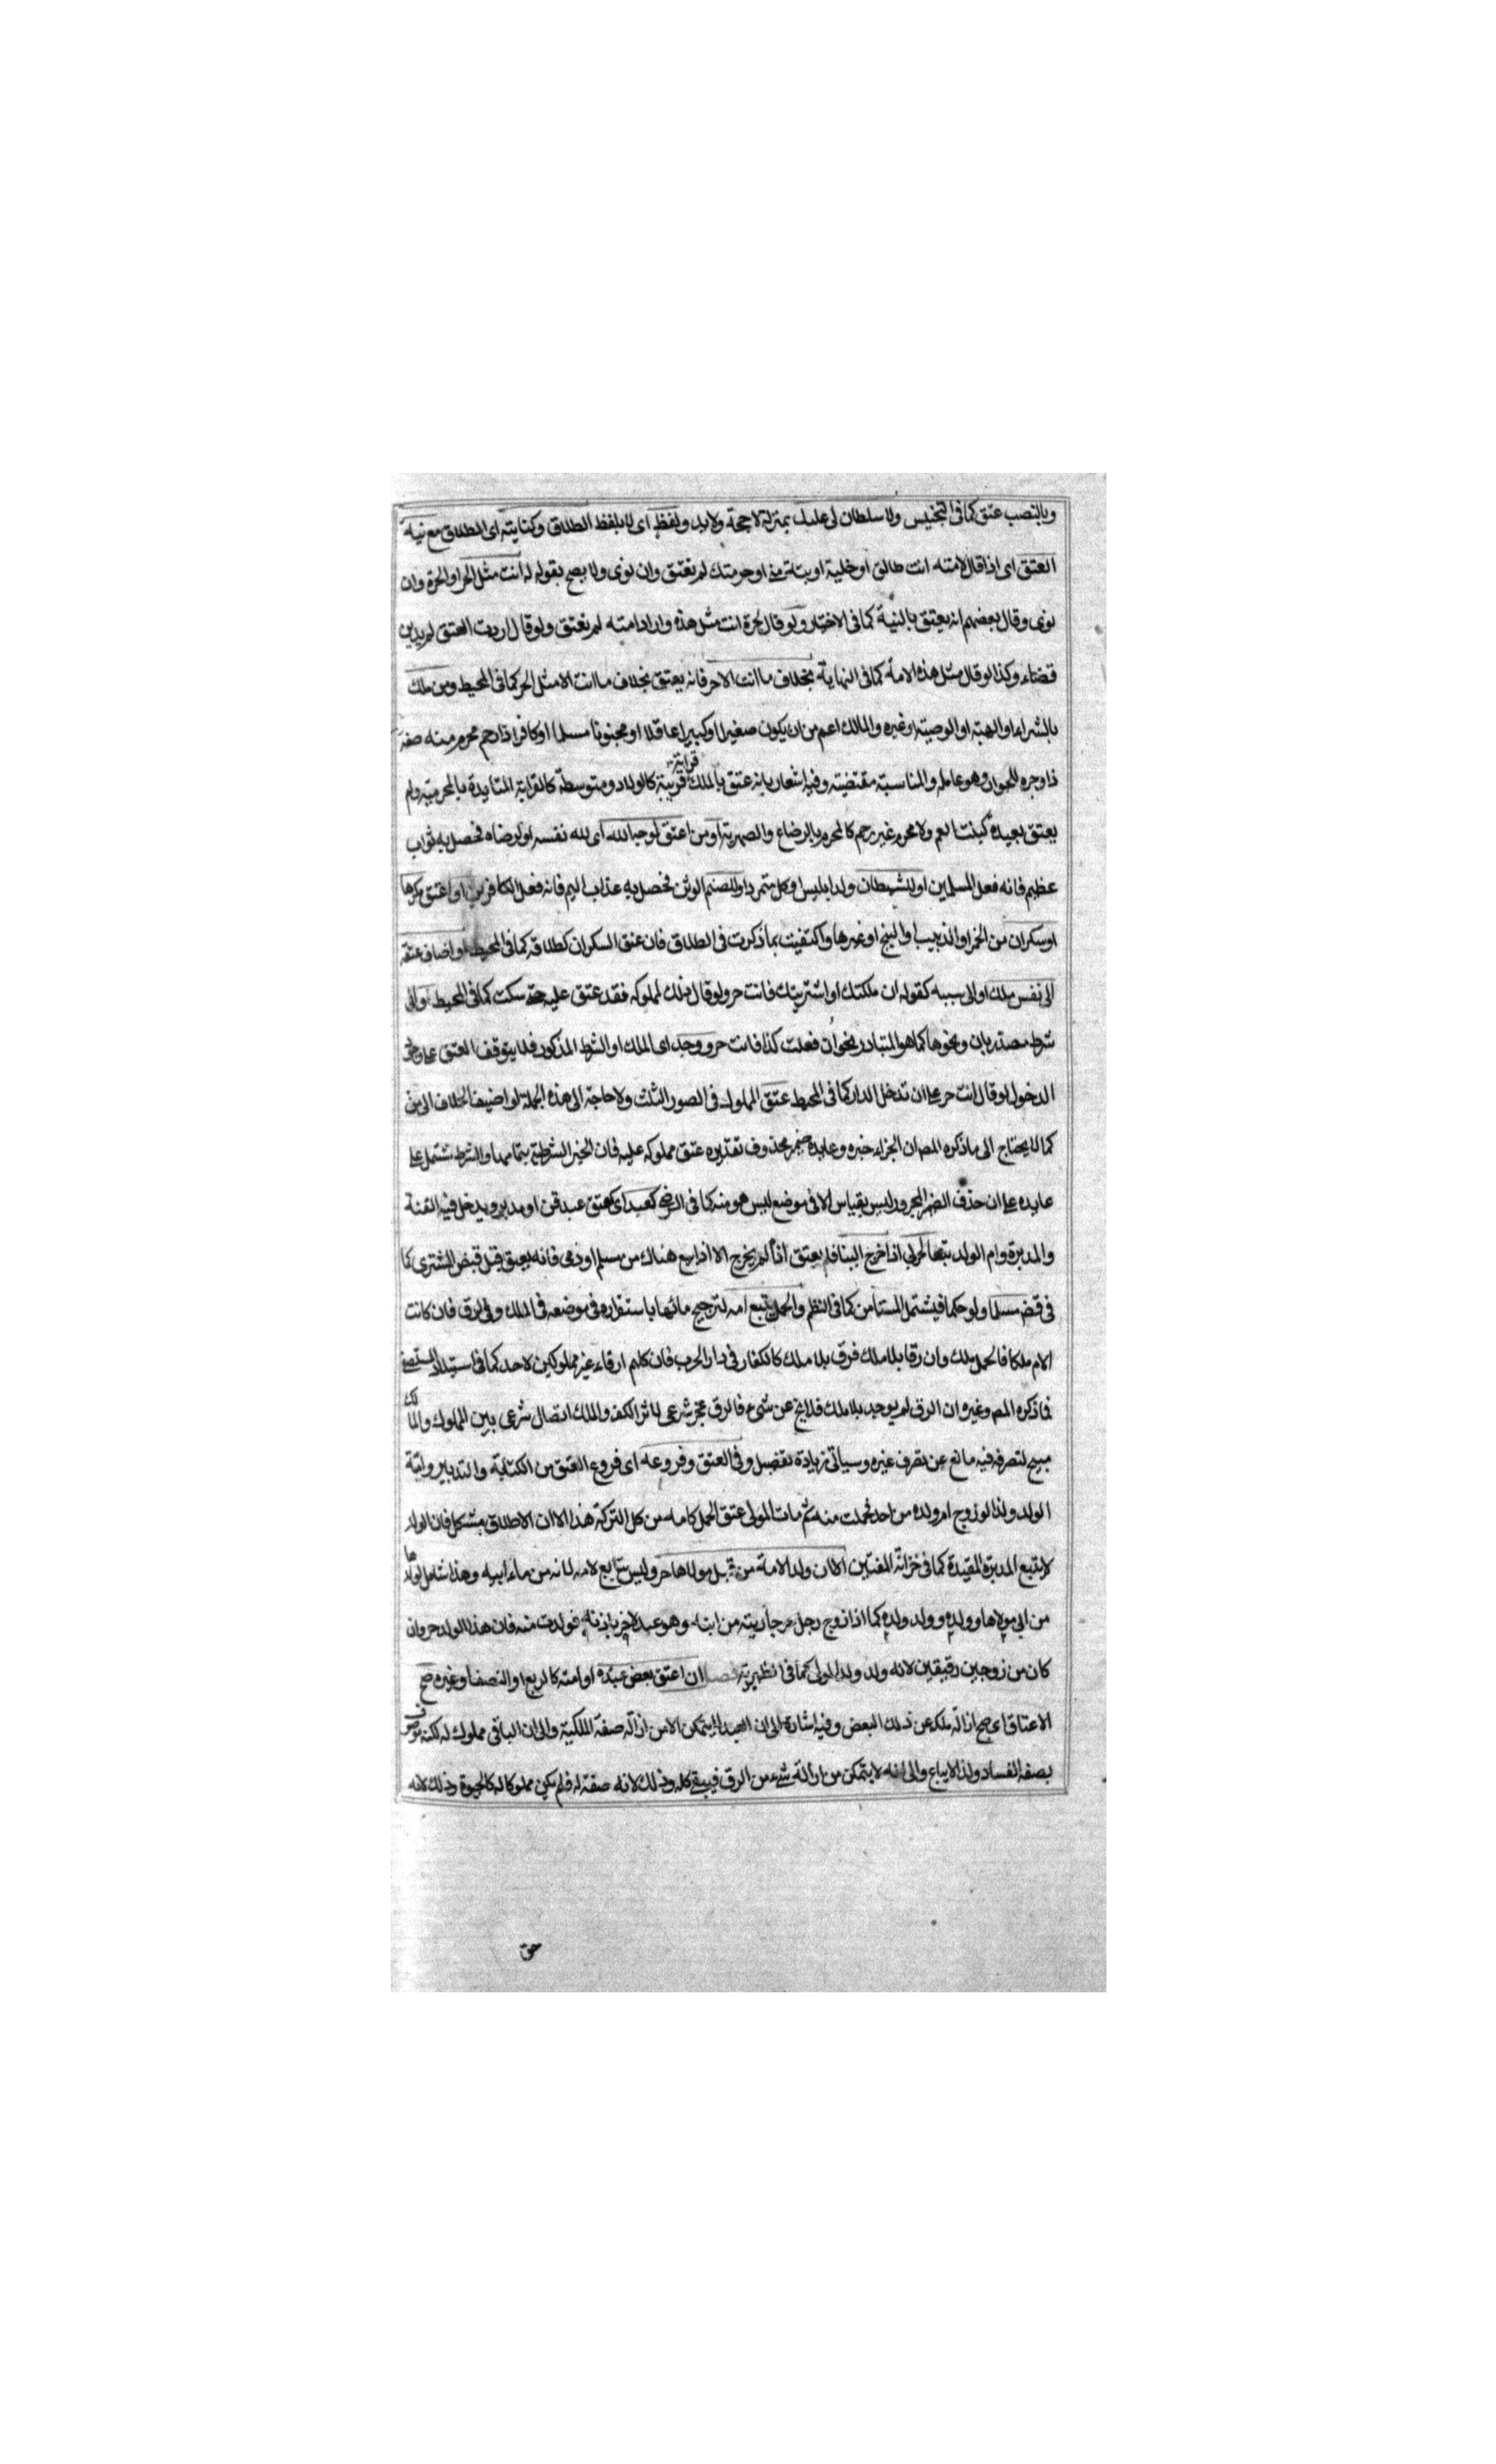 وبالنصب عتق كما فى التجنيس ولا سلطان لى عليك بمنزلة لا حجة ولا يد ولفظ اى لا بلفظ الطلاق وكنايته اى الطلاق مع نية
العتق اى اذا قال لامته انت طالق او خلية او بتة منى او حرمتك لم تعتق وان نوى ولا يصح بقوله له انت مثل الحر او الحرة وان
نوى وقال بعضهم انه يعتق بالنية كما فى الاختيار ولو قال لحرة انت مثل هذه واراد امته لم تعتق ولو قال اردت العتق لم يدين
قضاء وكذا لو قال مثل هذه الامة كما فى النهاية بخلاف ما انت الا حر فانه يعتق بخلاف ما انت الا مثل الحر كما فى المحيط ومن ملك
بالشراء او الهبة او الوصية او غيره والمالك اعم من ان يكون صغيرا او كبيرا عاقلا او مجنونا مسلما او كافرا ذا رحم محرم منه صفة
ذا وجره للجوار وهو عامله والمناسبة مقتضيته وفيه اشعار بانه عتق بالملك قرابة قريبة كالولاد ومتوسطة كالقرابة المتايدة بالمحرمية ولم
يعتق بعيدة كبنت العم ولا محرم غير رحم كالمحرم بالرضاع والصهرية او من اعتق لوجه الله اى لله نفسه او لرضاه فحصل به ثواب
عظيم فانه فعل المسلمين او للشيطان ولد ابليس وكل متمرد او للصنم الوثن فحصل به عذاب اليم فانه فعل الكافرين او اعتق مكرها
او سكران من الخمر او الذبيب او البنج او غيرها واكتفيت بما ذكرت فى الطلاق فان عتق السكران كطلاقه كما فى المحيط او اضاف عتقه
الى نفس ملك او الى سببه كقوله ان ملكتك او اشتريتك فانت حر ولو قال ذلك لمملوكه فقد عتق عليه حتى سكت كما فى المحيط او الى
شرط مصدر بان ونحوها كما هو المتبادر نحو ان فعلت كذا فانت حر ووجد اى الملك او الشرط المذكور فلا يتوقف العتق على وجود
الدخول لو قال انت حر على ان تدخل الدار كما فى المحيط عتق المملوك فى الصور الثلث ولا حاجة الى هذه الجملة لو اضيف الخلاف الى من
كما لا يحتاج الى ما ذكره المص ان الجزاء خبره وعايده ضمير محذوف تقديره عتق مملوكه عليه فان الخبر الشرطية بتمامها والشرط يشتمل على
عايده على ان حذف الضمير المجرور ليس بقياس الا فى موضع ليس هو منه كما فى الرضى كعبد اى كعتق عبد قن او مدبر ويدخل فيه القنة
والمدبرة وام الولد تبعا لحربى اذا خرج الينا فلم يعتق اذا لم يخرج الا اذا بيع هناك من مسلم او ذمى فانه يعتق قبل قبض المشترى كما
فى قض مسلما ولو حكما فيشتمل المستأمن كما فى النظم والحمل يتبع امه لترجيح مائها باستقراره فى موضعه فى الملك وفى الرق فان كانت
الام ملكا فالحمل ملك وان رقا بلا ملك فرق بلا ملك كالكفار فى دار الحرب فان كلهم ارقاء غير مملوكين لاحد كما فى استيلاد المستصفى
فما ذكره المص وغيره ان الرق لم يوجد بلا ملك فلا يخ عن شىء فالرق عجز شرعى لاثر الكفر والملك اتصال شرعى بين المملوك والمالك
مبيح لتصرفه فيه مانع عن تصرف غيره وسياتى زيادة تفصيل وفى العتق وفروعه اى فروع العتق من الكتابة والتدبير وامية
الولد ولذا لو زوج ام ولده من احد فحملت منه ثم مات المولى عتق الحمل كامه من كل التركة هذا الا ان الاطلاق مشكل فان الولد
لا يتبع المدبرة المقيدة كما فى خزانة المفتين الا ان ولد الامة من قبل مولاها حر وليس بتابع لامه لانه من ماء ابيه وهذا شامل لولدها
من ابى مولاها وولده وولد ولده كما اذا زوج رجل حر جاريته من ابنه وهو عبد لاخر باذنه فولدت منه فان هذا الولد حر وان
كان من زوجين رقيقين لانه ولد ولد المولى كما فى الظهيرية فصل ان اعتق بعض عبده او امته كالربع او النصف او غيره صح
الاعتاق اى صح ازالة ملكه عن ذلك البعض وفيه اشارة الى ان العبد لا يتمكن الا من ازالة صفة الملكية والى ان الباقى مملوك له لكنه موصوف
بصفة الفساد ولذا لا يباع والى انه لا يتمكن من ازالة شىء من الرق فيبقى كله وذلك لانه صفة له فلم يكن مملوكا له كالحيوة وذلك لانه
حق